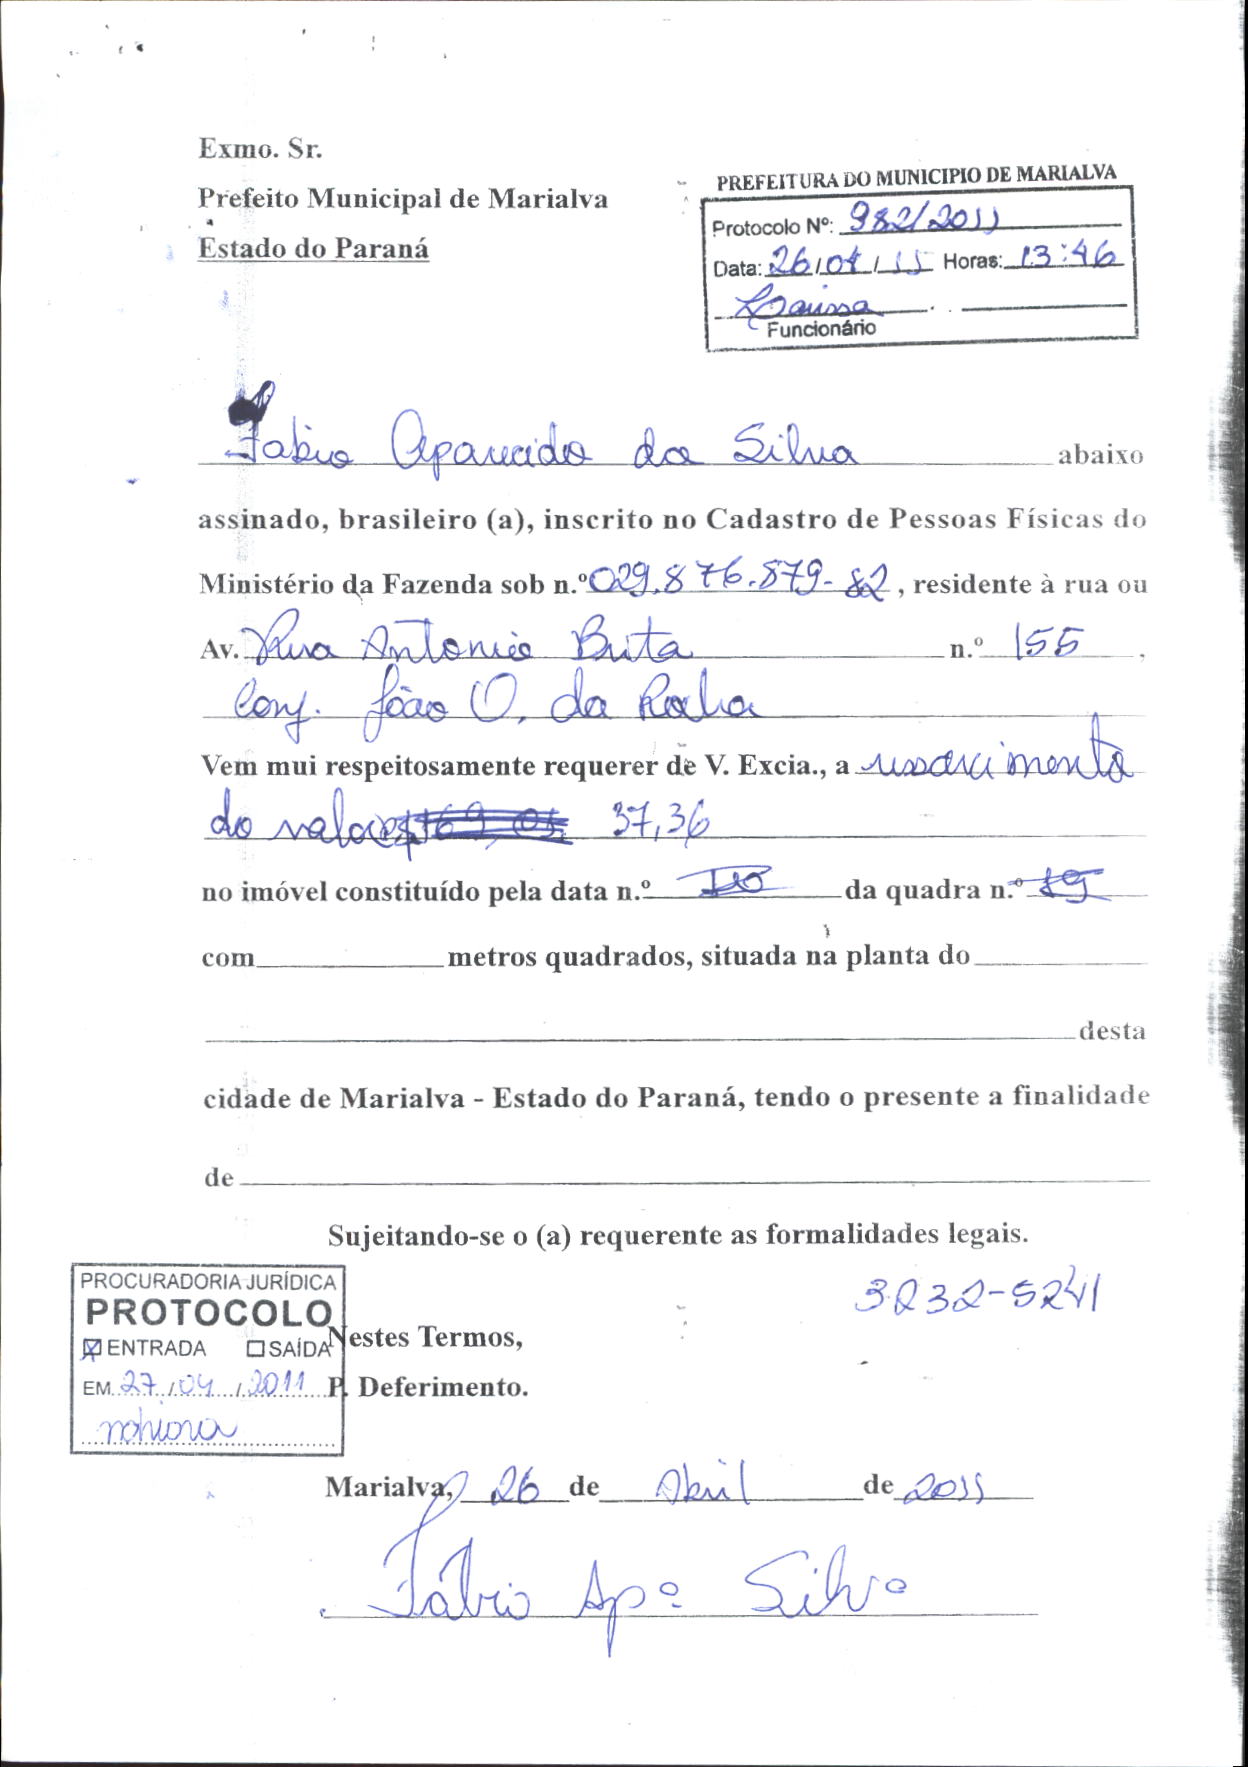 Exmo. Sr.
Prefeito Municipal de Marialva
Estado do Paraná
PREFEITURA DO MUNICIPIO DE MARIALVA
Protocolo Nº: 982/2011
Data: 26/04/11 Horas: 13:46
Funcionário
Fabio Aparecido da Silva abaixo
assinado, brasileiro (a), inscrito no Cadastro de Pessoas Físicas do
Ministério da Fazenda sob n.º 029.876.879-82, residente à rua ou
Av. Rua Antonio Brita n.º 155,
Conj. João O. da Rocha
Vem mui respeitosamente requerer de V. Excia., a ressarcimento
do valor 37,36
no imóvel constituído pela data n.º da quadra n.º 19
com metros quadrados, situada na planta do
desta
cidade de Marialva - Estado do Paraná, tendo o presente a finalidade
de
Sujeitando-se o (a) requerente as formalidades legais.
3232-5241
PROCURADORIA JURÍDICA
PROTOCOLO
ENTRADA SAÍDA
EM 27/04/2011
Nestes Termos,
P. Deferimento.
Marialva, 26 de Abril de 2011
Fábio Apº Silva